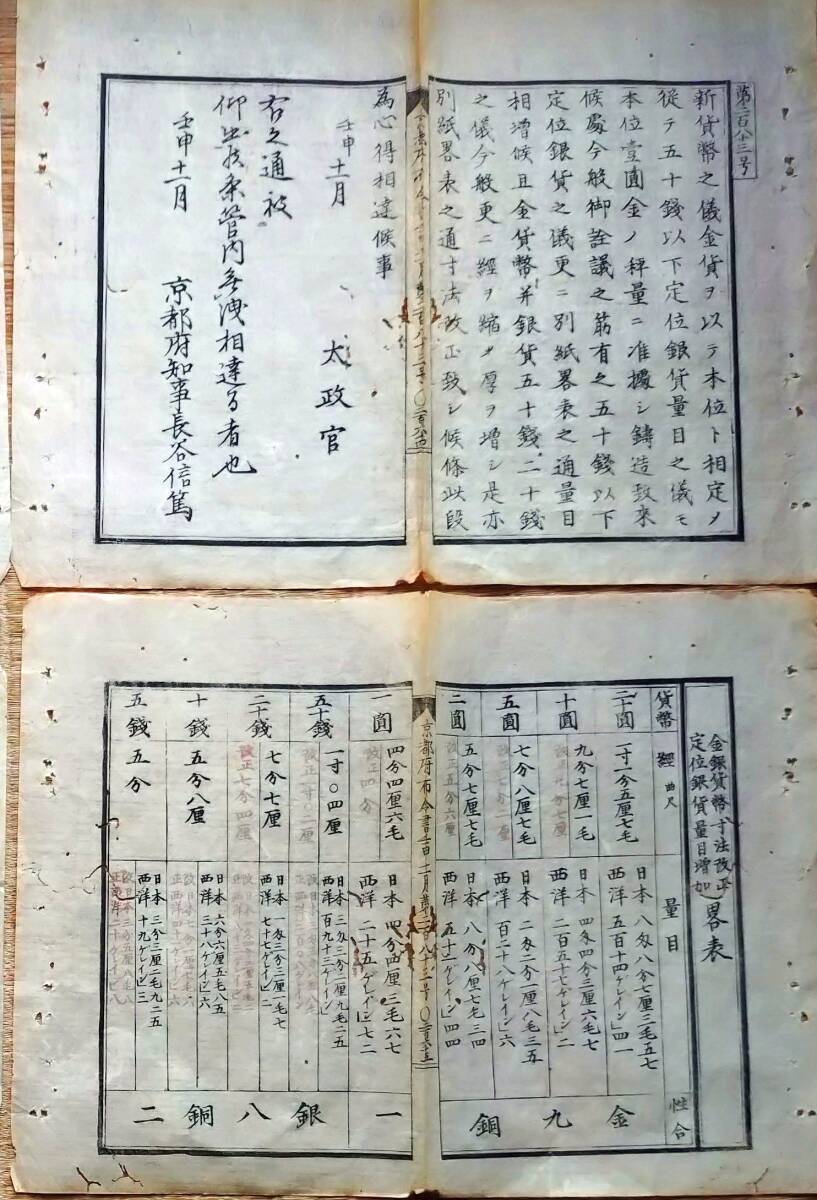 第二百八十三号
新貨幣之儀金貨ヲ以テ本位ト相定メ
從テ五十錢以下定位銀貨量目之儀モ
本位壹圓金ノ秤量ニ准據シ鑄造致來
候處今般御詮議之筋有之五十錢以下
定位銀貨之儀更ニ別紙畧表之通量目
相増候且金貨幣并銀貨五十錢二十錢
之儀今般更ニ經ヲ縮メ厚ヲ増シ是亦
別紙畧表之通寸法改正致シ候條此段
為心得相達候事
壬申十一月
太政官
右之通被
仰出候条管内無洩相達る者也
壬申十一月
京都府知事長谷信篤
金銀貨幣寸法改正
定位銀貨量目増加
畧表
貨幣
經 曲尺
量目
性合
二十圓
一寸一分五厘七毛
日本 八匁八分七厘三毛五七
西洋 五百十四ケレイン」四一
十圓
九分七厘一毛
改正九分七厘
日本 四匁四分三厘六毛七
西洋 二百五十七ケレイン」二
五圓
七分八厘七毛
日本 二匁二分一厘八毛三五
西洋 百二十八ケレイン」六
二圓
五分七厘七毛
改正五分六厘
日本 八分八厘七毛三四
西洋 五十一ケレイン」四四
金九銅一
京都府布令書
一圓
四分四厘六毛
改正四分
日本 四分四厘三毛六七
西洋 二十五ケレイン」七二
五十錢
一寸〇四厘
改正一寸〇二厘
日本 三匁三分二厘九毛二五
西洋 百九十三ケレイン」
二十錢
七分七厘
改正七分四厘
日本 一匁三分三厘一毛七
西洋 七十七ケレイン」二
十錢
五分八厘
日本 六分六厘五毛八五
西洋 三十八ケレイン」六
五錢
五分
日本 三分三厘二毛九二五
西洋 十九ケレイン」三
銀八銅二